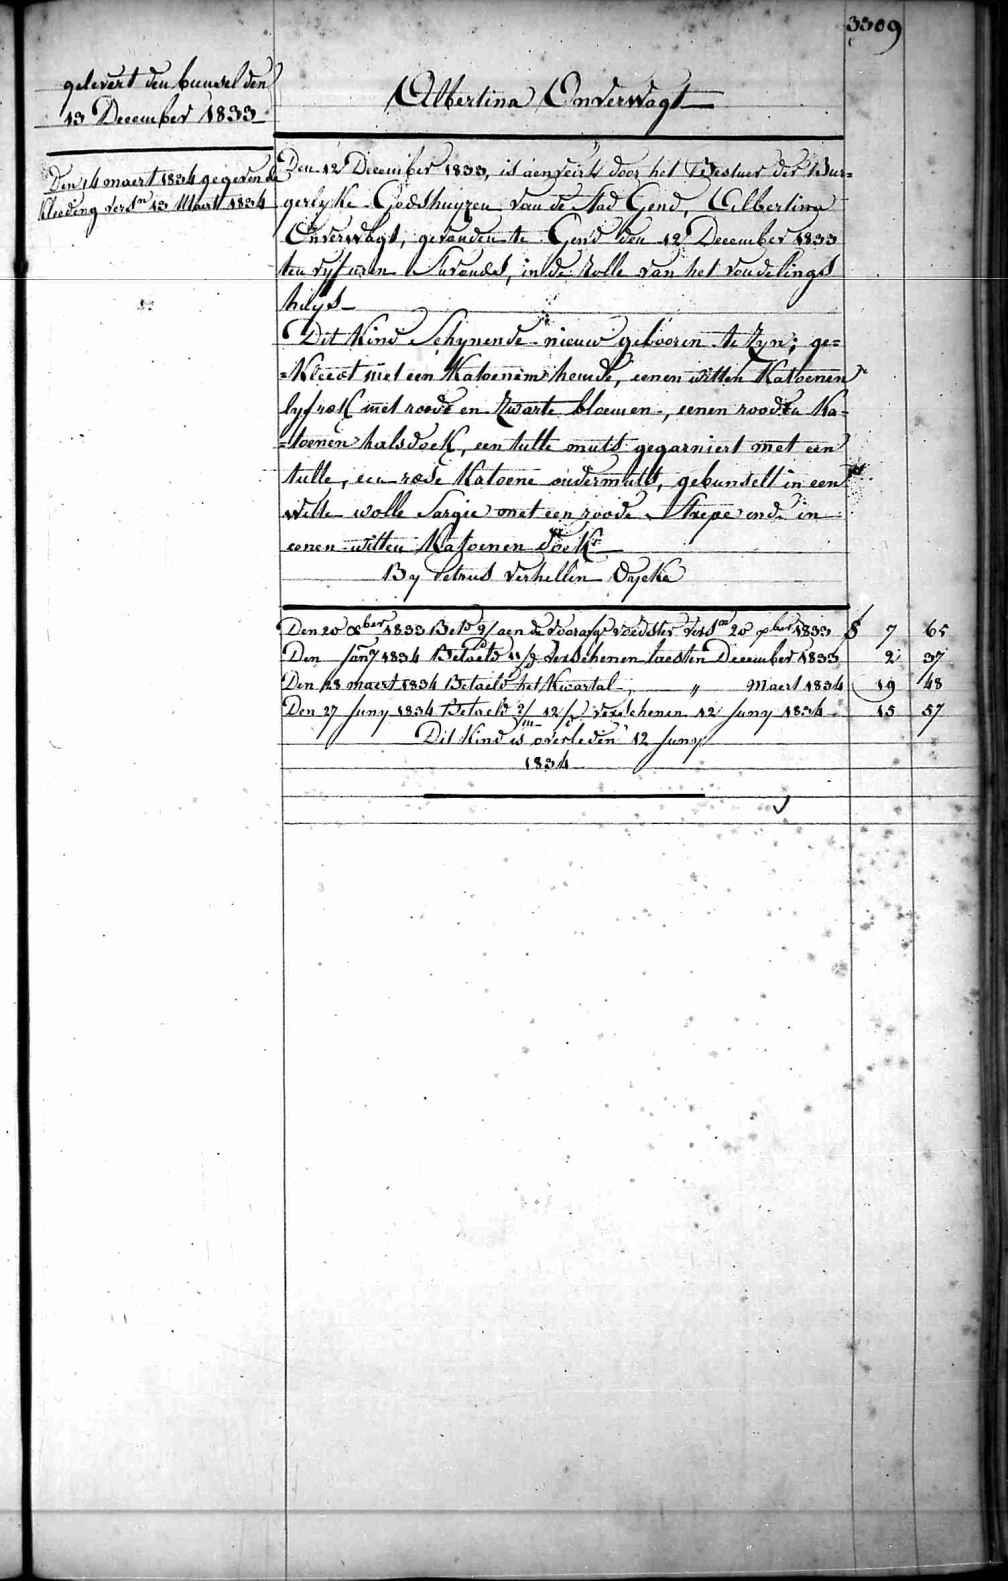 3309
gelevert den bunsel den
13 December 1833
Albertina Onverwagt
Den 14 maert 1834 gegeven de
kleeding versn 13 Maart 1834
Den 12 December 1833, is aenveirt door het Bestuer der Bur=
gerlyke Godshuyzen van de stad Gend, Albertina
Onverwagt, gevonden te Gend den 12 December 1833
ten vyf uren s'avonds, in de Rolle van het vondelings
huys
Dit Kind Schynende nieuw gebooren te zyn; ge=
=kleedt met een Katoenen hemde, eenen witten Katoenen
lyfrok met roode en zwarte bloemen, eenen rooden Ka=
=toenen halsdoek, een tulle muts gegarniert met een
tulle, een rose Katoene ondermuts, gebunselt in een
witte wolle Sargie met een roode Strepe ende in
eenen witten Katoenen doek
By Petrus Verhellen Eycke
Den 20 xber 1833 Bet. aen de voorzorge voedster versn 20 xber 1833 7 65
Den Jany 1834 Betaeld 11/ verschenen laesten December 1833 2 37
Den 28 maert 1834 Betaeld het Kwartal " Maert 1834 19 48
Den 27 Juny 1834 Betaeld 2/m 12/ verschenen 12 Juny 1834 15 57
Dit Kind is overleden 12 Juny
1834